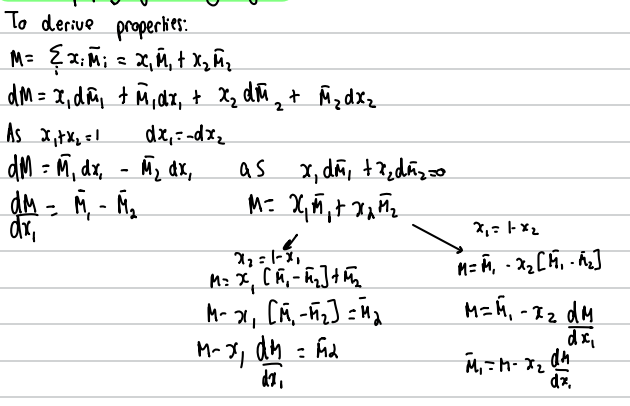 To derive properties:
M = Σᵢ xᵢM̄ᵢ = x₁M̄₁ + x₂M̄₂
dM = x₁dM̄₁ + M̄₁dx₁ + x₂dM̄₂ + M̄₂dx₂
As x₁+x₂=1 dx₁=-dx₂
dM = M̄₁dx₁ - M̄₂dx₁ as x₁dM̄₁ + x₂dM̄₂=0
dM/dx₁ = M̄₁ - M̄₂ M = x₁M̄₁ + x₂M̄₂
x₂ = 1-x₁
M = x₁[M̄₁-M̄₂]+M̄₂
M - x₁[M̄₁-M̄₂] = M̄₂
M - x₁ dM/dx₁ = M̄₂
x₁ = 1-x₂
M = M̄₁ - x₂[M̄₁-M̄₂]
M = M̄₁ - x₂ dM/dx₁
M̄₁ = M - x₂ dM/dx₁